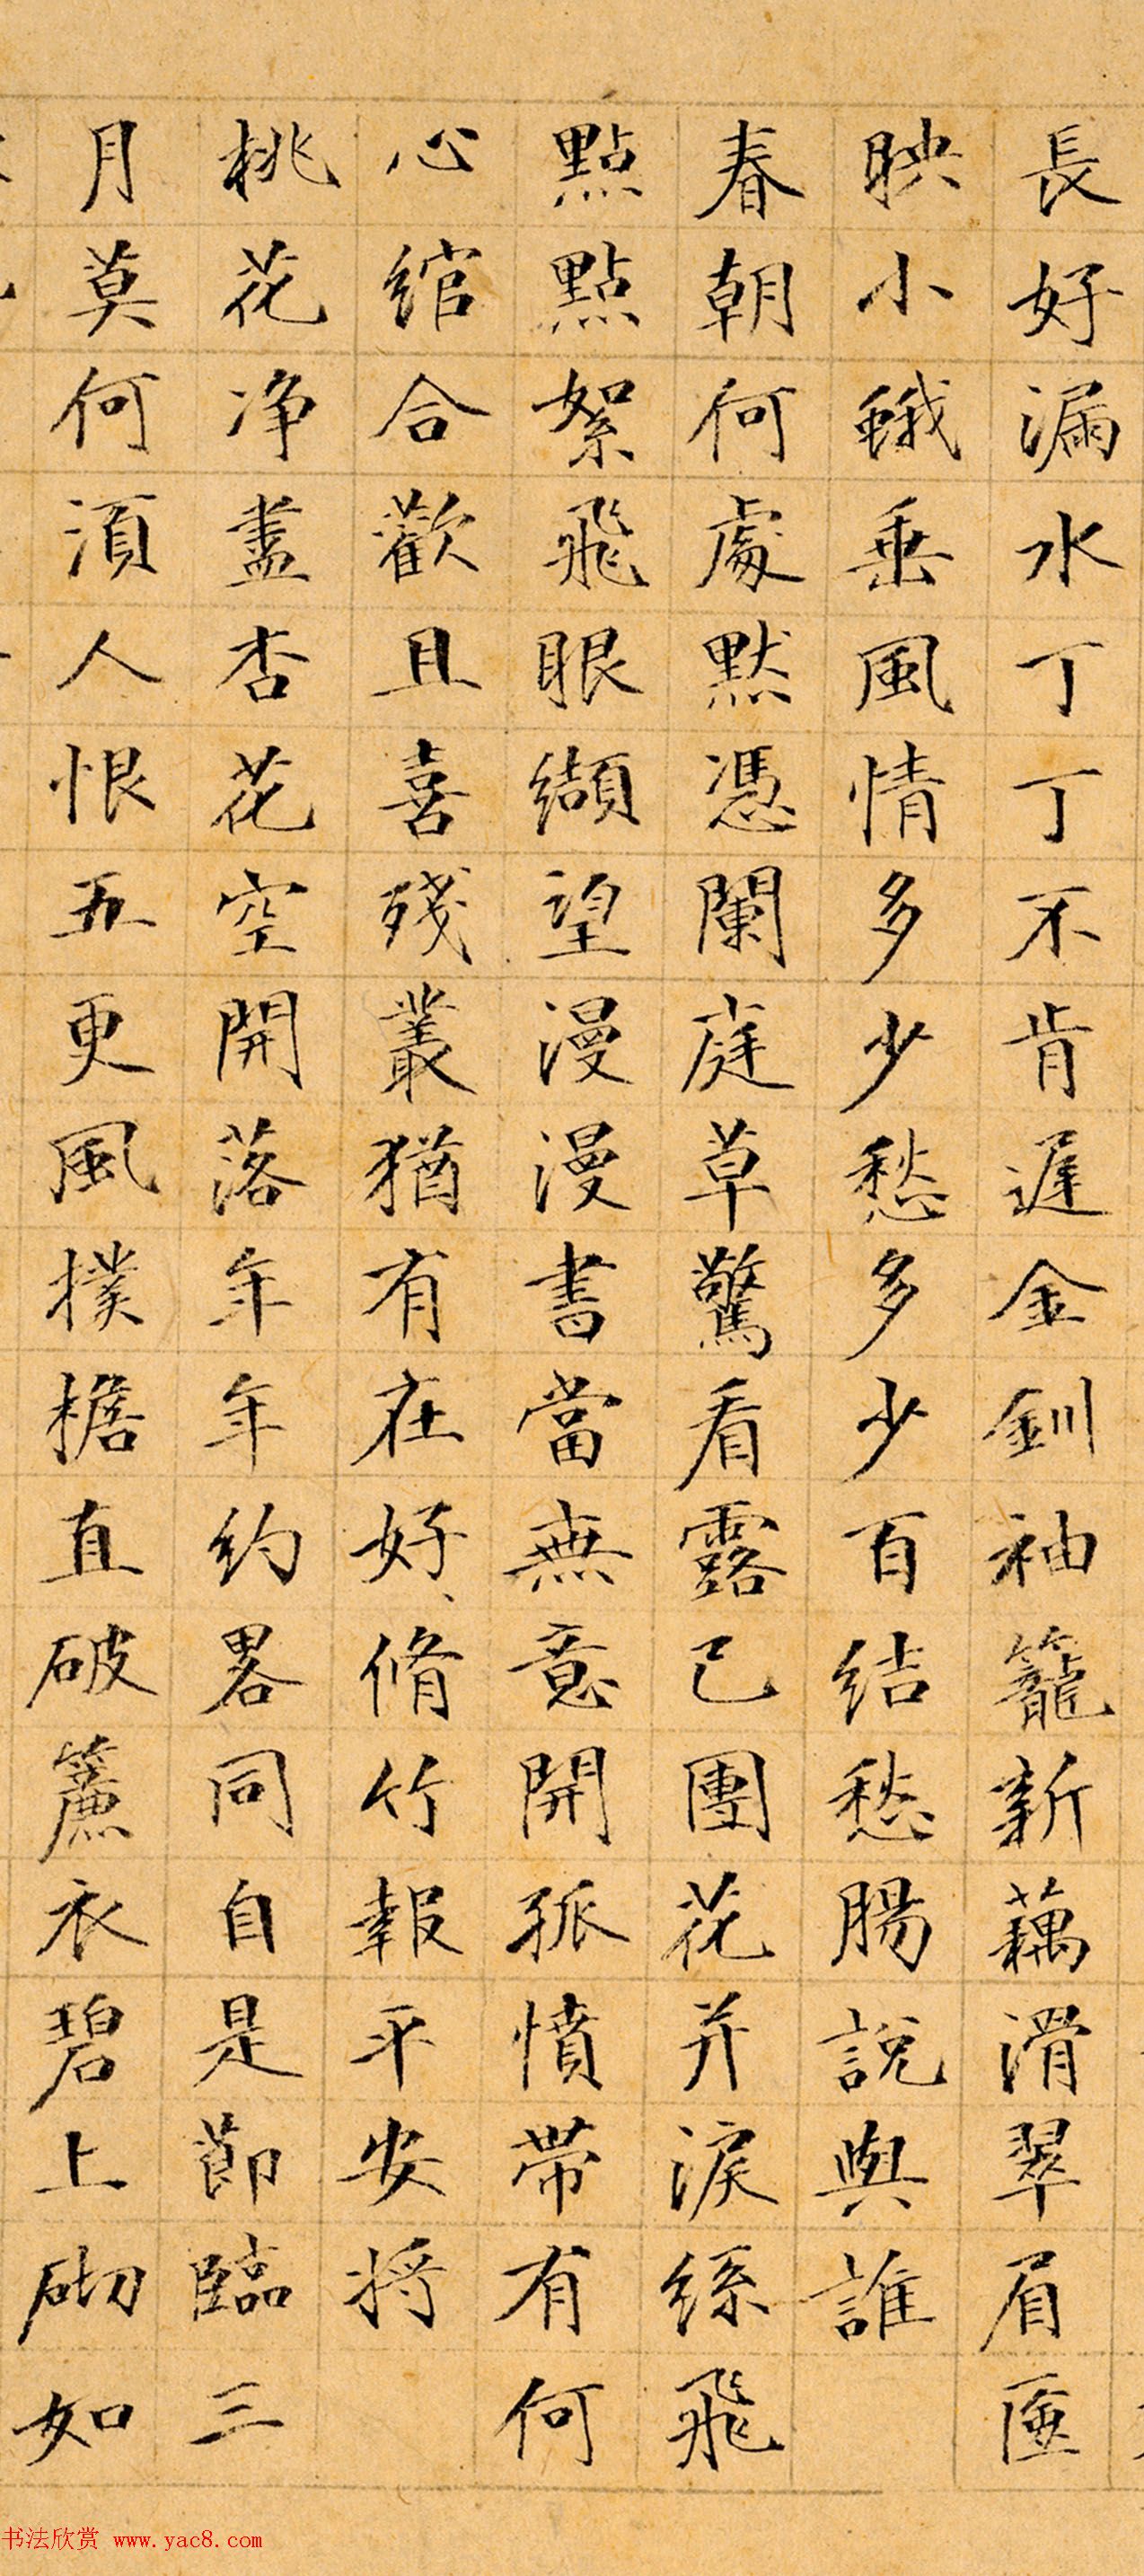 長好漏水丁丁不肯遲金釧袖籠新藕滑翠眉匳
映小蛾垂風情多少愁多少百結愁腸說與誰
春朝何處默憑闌庭草驚看露已團花并淚絲飛
點點絮飛眼纈望漫漫書當無意開孤憤帶有何
心綰合歡且喜殘叢猶有在好脩竹報平安將
桃花净盡杏花空開落年年約畧同自是節臨三
月莫何湏人恨五更風撲檐直破簾衣碧上砌如
书法欣赏 www.yac8.com